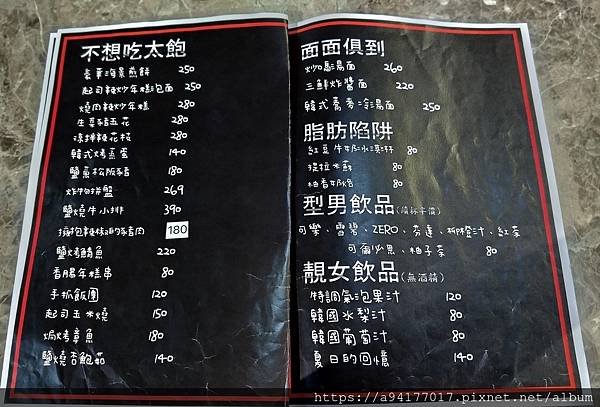 不想吃太飽
豪華海景煎餅 250
起司辣炒年糕泡面 250
燒肉辣炒年糕 280
生菜包五花 280
涼拌辣花枝 280
韓式烤蒸蛋 140
鹽蔥松阪豬 180
炸物拼盤 269
鹽燒牛小排 390
180
鹽烤鯖魚 220
香腸年糕串 80
手抓飯團 120
起司玉米燒 150
焗烤章魚 180
鹽燒杏鮑菇 140
面面俱到
炒馬湯面 260
三鮮炸醬面 220
韓式蕎麥冷湯面 250
脂肪陷阱
紅豆牛奶冰淇淋 80
提拉米蘇 80
柚香奶酪 80
型男飲品
可樂、雪碧、ZERO、芬達、柳橙汁、紅茶
可爾必思、柚子茶 80
靚女飲品(無酒精)
特調氣泡果汁 120
韓國水梨汁 80
韓國葡萄汁 80
夏日的回憶 140
https://a94177017.pixnet.net/album